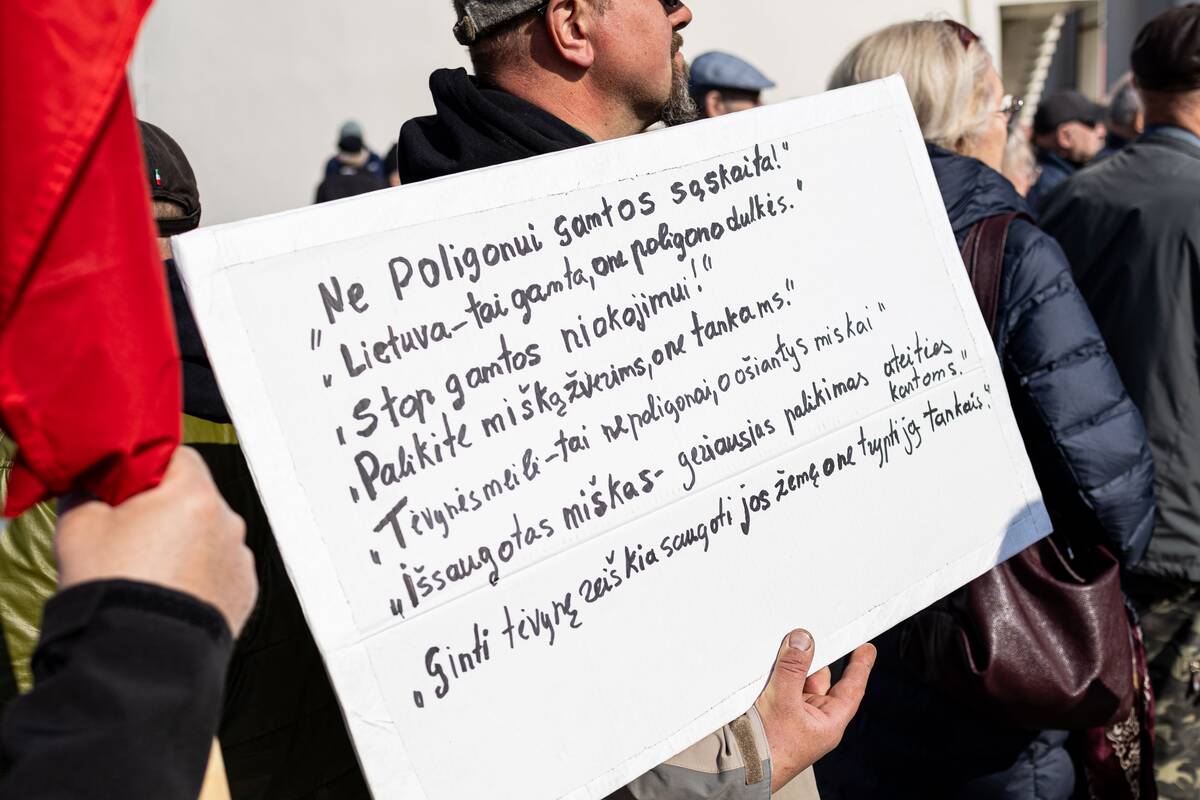 „Ne Poligonui gamtos sąskaita!"
„Lietuva-tai gamta, one poligono dulkės."
„Stop gamtos niokojimui!"
„Palikite mišką žvėrims, one tankams."
„Tėvynės meili-tai ne poligonai, o ošiantys miskai"
„Išsaugotas miškas- geriausias palikimas ateities kartoms."
„Ginti tėvynę reiškia saugoti jos žemę one trypti ją tankais."